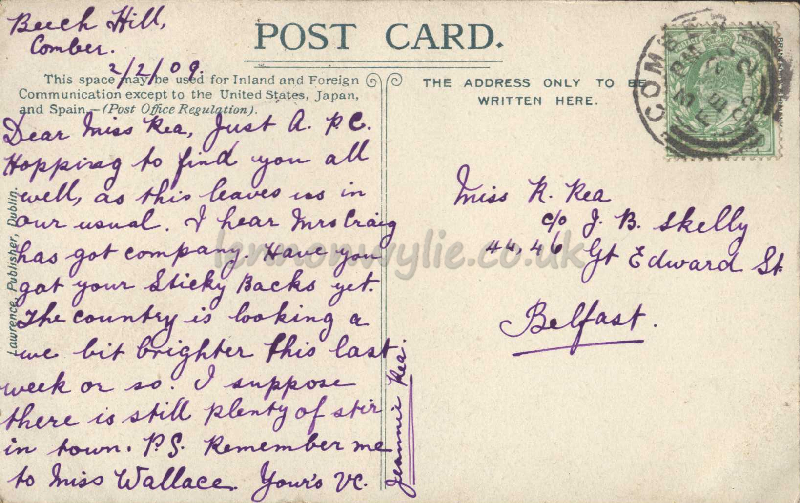 Beech Hill,
Comber.
2/2/09.
POST CARD.
This space may be used for Inland and Foreign
Communication except to the United States, Japan,
and Spain.—(Post Office Regulation).
THE ADDRESS ONLY TO BE
WRITTEN HERE.
COMBER
Dear Miss Rea, Just A. P.C.
Hopping to find you all
well, as this leaves us in
our usual. I hear Mrs Craig
has got company. Have you
got your Sticky Backs yet.
The country is looking a
wee bit brighter this last
week or so. I suppose
there is still plenty of stir
in town. P.S. Remember me
to Miss Wallace. Your's VC.
Jeannie Rea.
Miss R. Rea
c/o J. B. Skelly
44, 46 Gt Edward St
Belfast.
Lawrence, Publisher, Dublin.
lennonwylie.co.uk